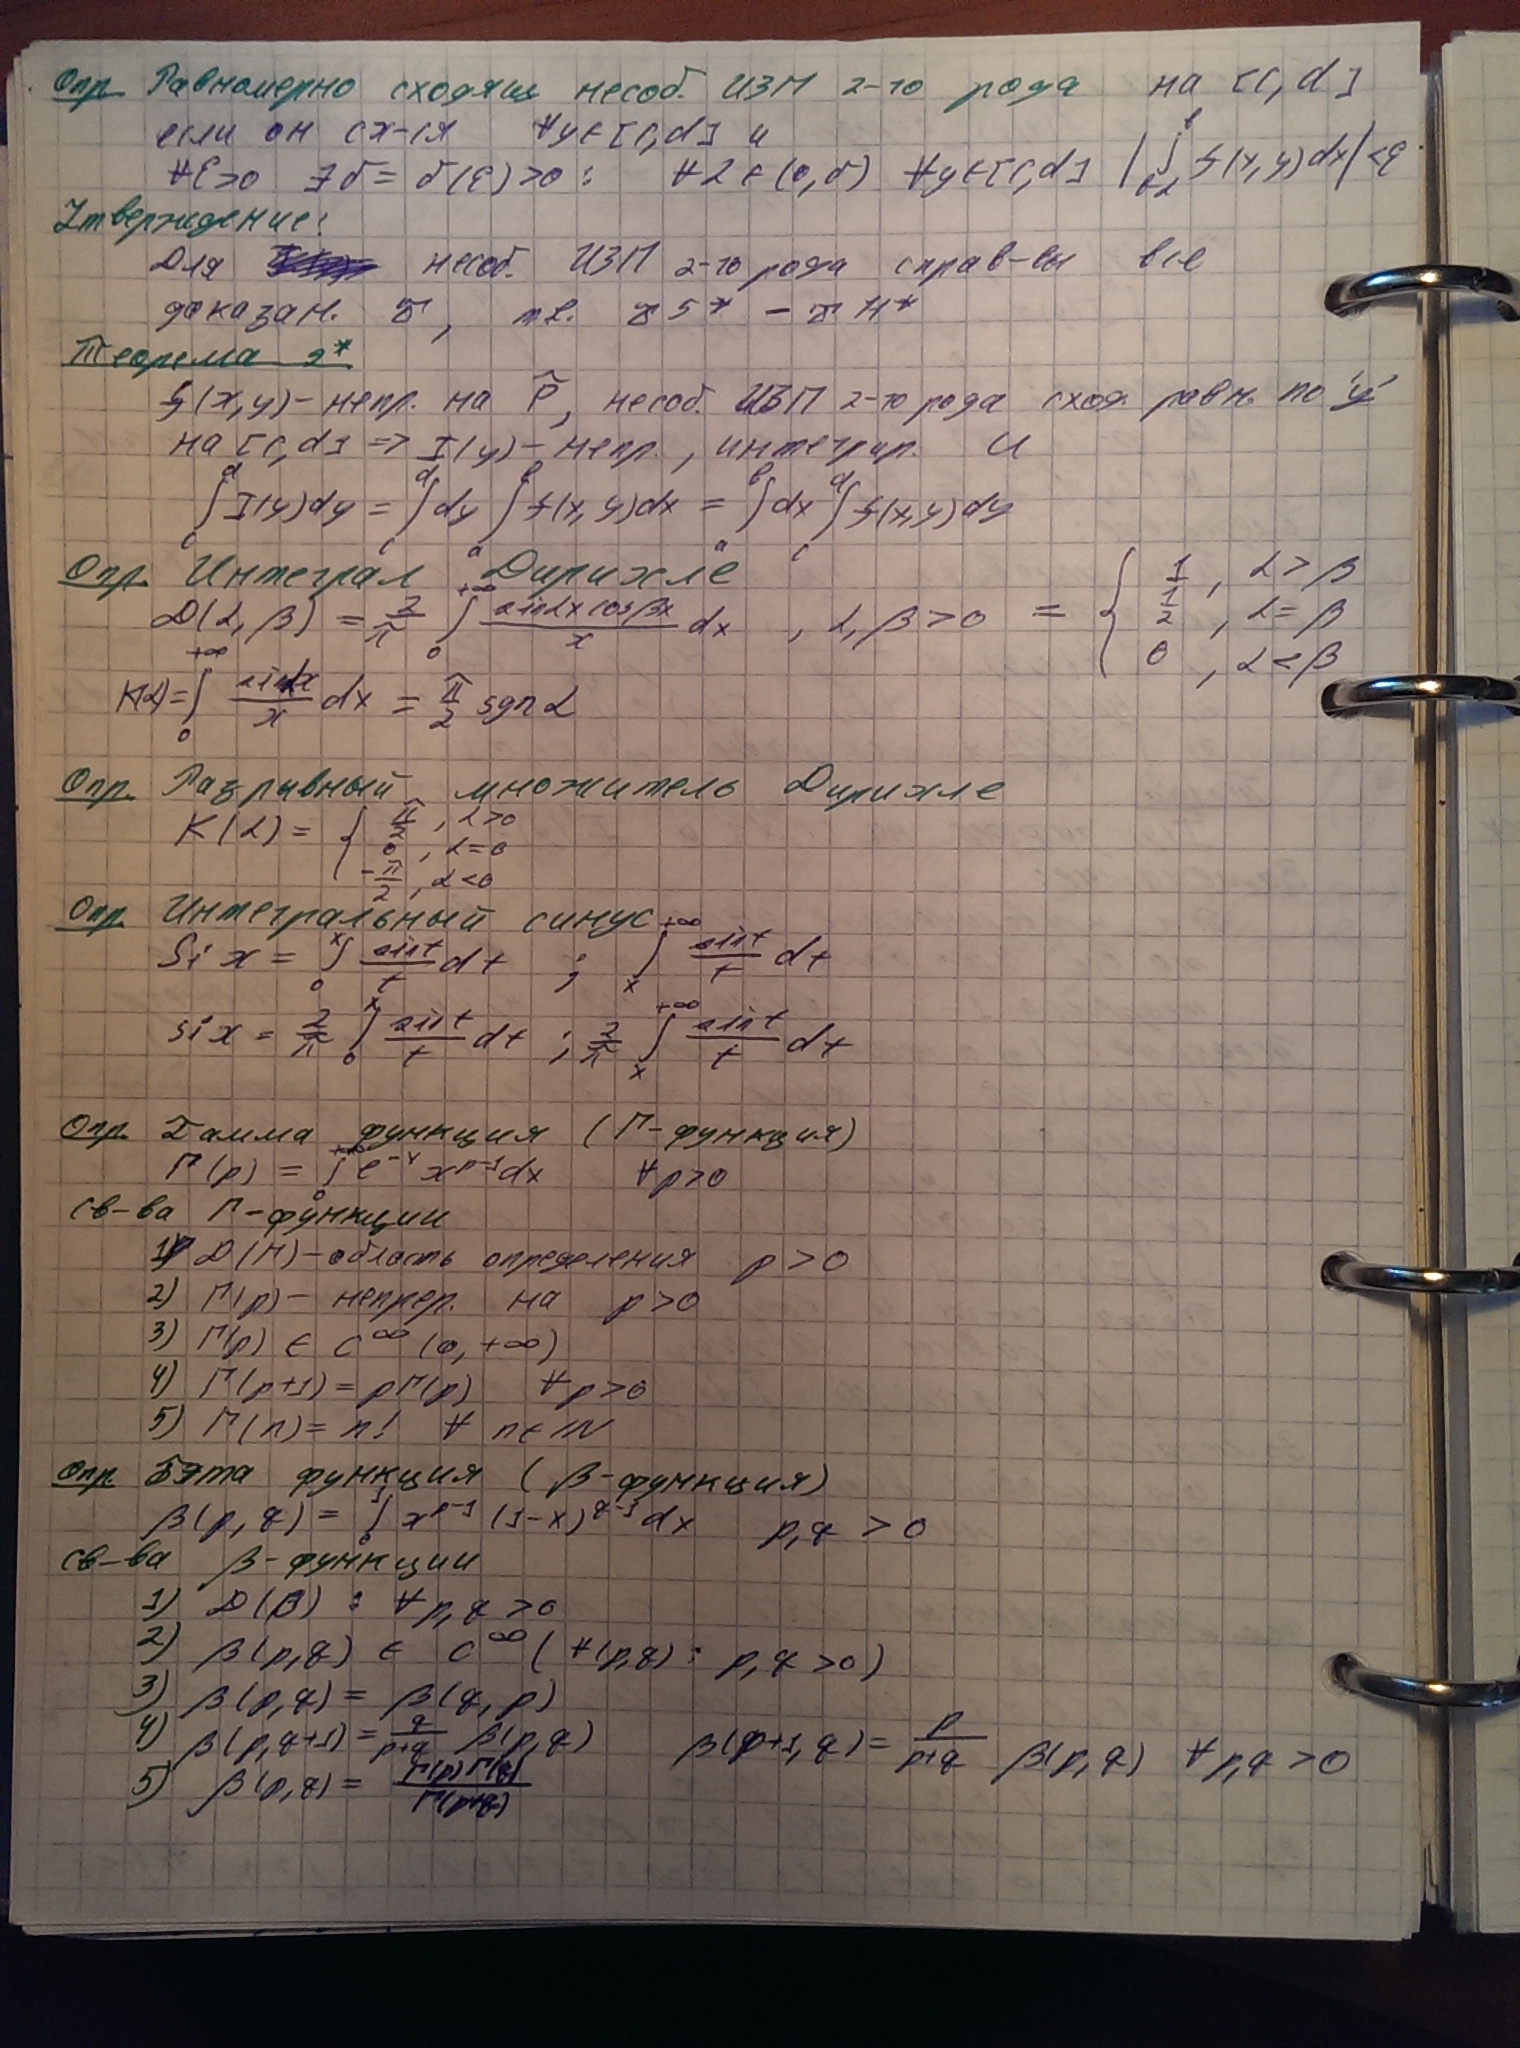 Опр. Равномерно сходящ несоб. ИЗП 2-го рода на [c,d]
если он сх-ся ∀y∈[c,d] и
∀ε>0 ∃δ=δ(ε)>0: ∀α∈(0,δ) ∀y∈[c,d] |∫_{b-α}^{b} f(x,y)dx|<ε
Утверждение:
Для несоб. ИЗП 2-го рода справ-вы все
доказан. т.е. 5* –
Теорема 2*
f(x,y)-непр. на P̃, несоб. ИЗП 2-го рода сход. равн. по "y"
на [c,d] => I(y)-непр., интегрир. и
∫_c^d I(y)dy = ∫_c^d dy ∫_a^b f(x,y)dx = ∫_a^b dx ∫_c^d f(x,y)dy
Опр. Интеграл Дирихле
D(α,β) = 2/π ∫_0^{+∞} (sinαx cosβx)/x dx , α,β>0 = { 1, α>β ; 1/2, α=β ; 0, α<β
K(α)=∫_0^{+∞} sinαx/x dx = π/2 sgn α
Опр. Разрывный множитель Дирихле
K(α) = { π/2, α>0 ; 0, α=0 ; -π/2, α<0
Опр. Интегральный синус
Si x = ∫_0^x sint/t dt ; ∫_x^{+∞} sint/t dt
si x = 2/π ∫_0^x sint/t dt ; 2/π ∫_x^{+∞} sint/t dt
Опр. Гамма функция (Г-функция)
Г(p) = ∫_0^{+∞} e^{-x} x^{p-1} dx ∀p>0
св-ва Г-функции
1) D(Г)-область определения p>0
2) Г(p)- непрер. на p>0
3) Г(p) ∈ C^∞ (0,+∞)
4) Г(p+1)=pГ(p) ∀p>0
5) Г(n)=n! ∀ n∈IN
Опр Бэта функция (β-функция)
β(p,q)= ∫_0^1 x^{p-1} (1-x)^{q-1} dx p,q>0
св-ва β-функции
1) D(β) : ∀p,q>0
2) β(p,q) ∈ C^∞ (∀(p,q): p,q>0)
3) β(p,q)= β(q,p)
4) β(p,q+1)= q/(p+q) β(p,q) β(p+1,q)= p/(p+q) β(p,q) ∀p,q>0
5) β(p,q)= Г(p)Г(q)/Г(p+q)